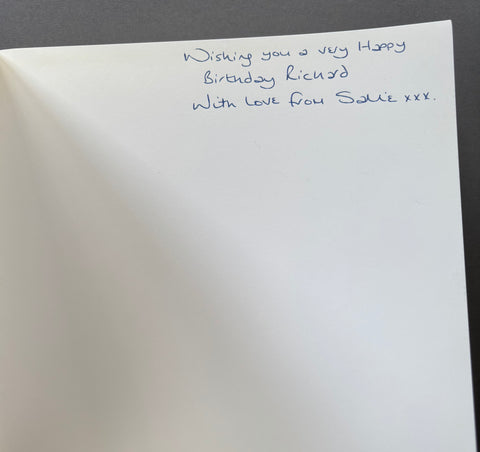 Wishing you a very Happy
Birthday Richard
With Love from Sallie xxx.